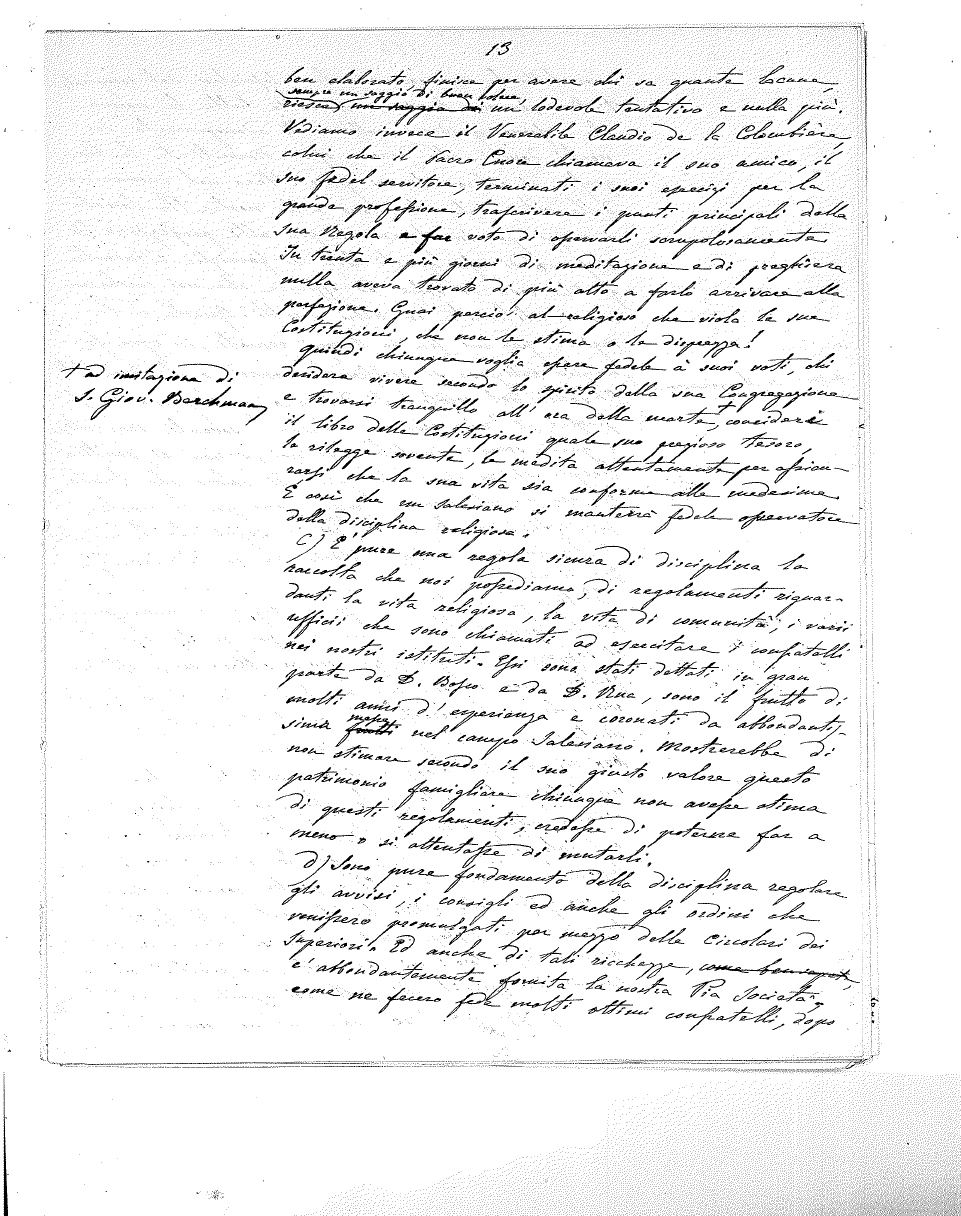 13
ben elaborato, finisce per avere chi sa quante lacune,
sempre un saggio di buon volere,
riesce un saggio di un lodevole tentativo e nulla più.
Vediamo invece il Venerabile Claudio de la Colombière,
colui che il Sacro Cuore chiamava il suo amico, il
suo fedel servitore, terminati i suoi esercizi per la
grande professione, trascrivere i punti principali della
sua Regola e far voto di osservarli scrupolosamente
In trenta e più giorni di meditazione e di preghiera
nulla aveva trovato di più atto a farlo arrivare alla
perfezione. Guai perciò al religioso che viola le sue
Costituzioni, che non le stima o le disprezza!
quindi chiunque voglia essere fedele a' suoi voti, chi
desidera vivere secondo lo spirito della sua Congregazione
e trovarsi tranquillo all' ora della morte +, consideri
+ ad imitazione di
S. Giov. Berchmans
il libro delle Costituzioni quale suo prezioso tesoro,
le rilegge sovente, le medita attentamente per assicu-
rarsi che la sua vita sia conforme alle medesime
È così che un Salesiano si manterrà fedele osservatore
della disciplina religiosa.
C) È pure una regola sicura di disciplina la
raccolta che noi possediamo, di regolamenti riguar-
danti la vita religiosa, la vita di comunità, i varii
ufficii che sono chiamati ad esercitare i confratelli
nei nostri istituti. Essi sono stati dettati in gran
parte da D. Bosco e da D. Rua, sono il frutto di
molti anni d' esperienza e coronati da abbondantis-
sima messe frutti nel campo Salesiano. Mostrerebbe di
non stimare secondo il suo giusto valore questo
patrimonio famigliare chiunque non avesse stima
di questi regolamenti, credesse di poterne far a
meno o si attentasse di mutarli.
d) Sono pure fondamento della disciplina regolare
gli avvisi, i consigli ed anche gli ordini che
venissero promulgati per mezzo delle Circolari dei
Superiori. Ed anche di tali ricchezze, come ben sapete,
è abbondantemente fornita la nostra Pia Società,
come ne fecero fede molti ottimi confratelli, dopo